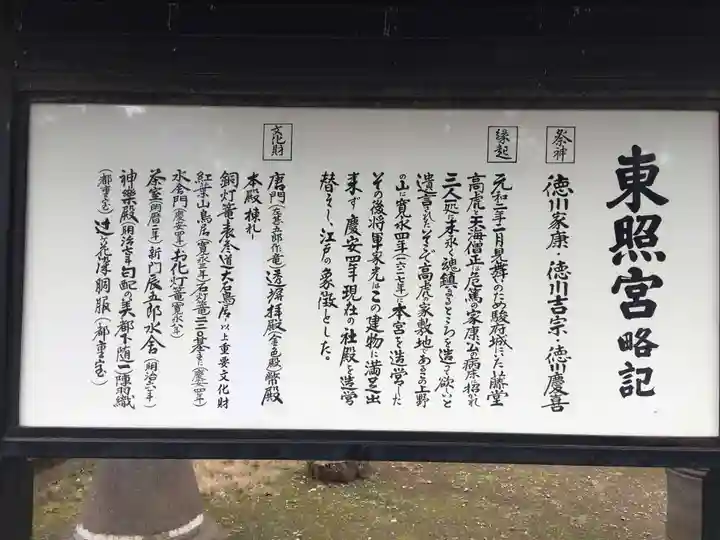 東照宮略記
祭神
徳川家康・徳川吉宗・徳川慶喜
縁起
元和二年二月見舞のため駿府城にいた藤堂
高虎と天海僧正は危篤の家康公の病床に招かれ
三人一処に末永く魂鎮まるところを造って欲しいと
遺言された。そこで高虎の家敷地であるこの上野
の山に寛永四年(一六二七年)に本宮を造営した
その後将軍家光はこの建物に満足出
来ず、慶安四年現在の社殿を造営
替えし、江戸の象徴とした。
文化財
唐門(左甚五郎作竜)透塀拝殿(金色殿)幣殿
本殿棟札
銅灯篭表参道大石鳥居以上重要文化財
紅葉山鳥居(寛永三年)石灯篭二三〇基(慶安四年)
水舎門(慶安四年)お化灯篭(寛永八年)
茶室(明暦二年)新門辰五郎水舎(明治六年)
神楽殿(明治七年)勾配の美都下随一陣羽織
(都重宝)辻が花染胴服(都重宝)